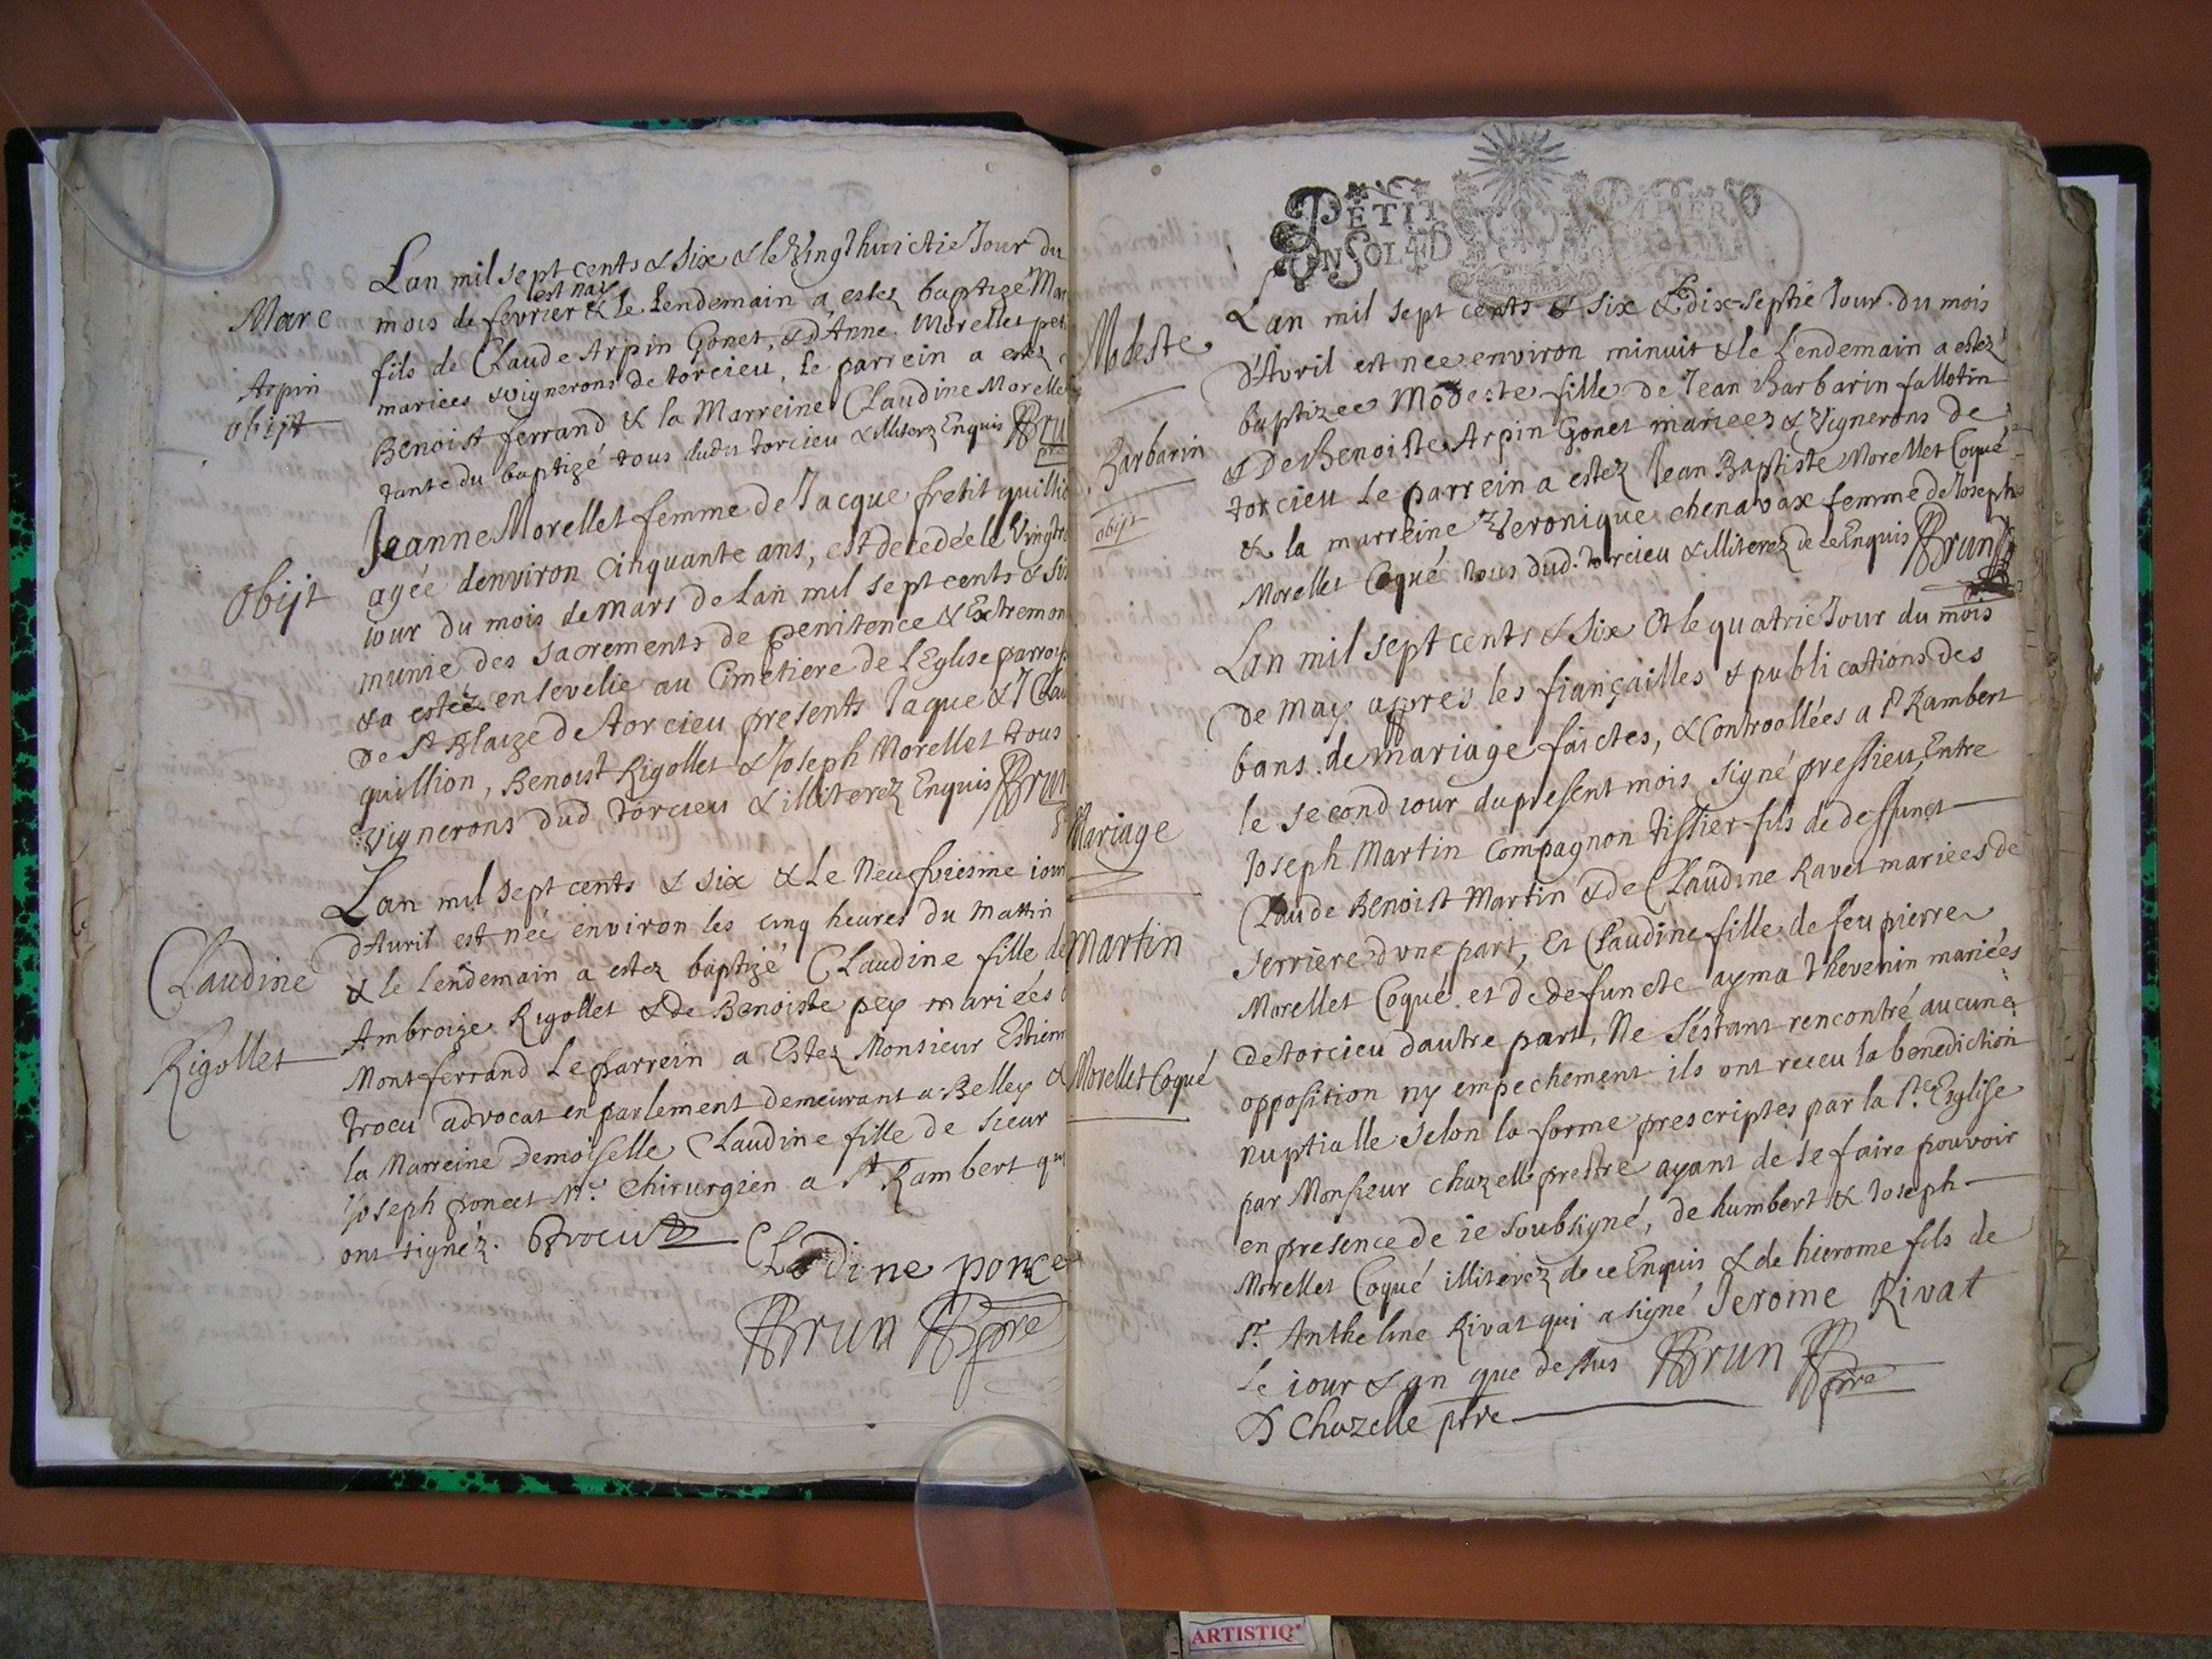 Lan mil sept cents & six & le Vingt huictie Jour du
est nay
mois de fevrier & le Lendemain a estez baptizé Mar
Marc
fils de Claude Arpin Gonet, & d'Anne Morellet
Arpin
mariees & vignerons de torcieu, le parrein a estez
obijt
Benoist ferrand & la Marreine Claudine Morellet
tante du baptizé tous dudit torcieu & illiterz Enquis Bru
pre
Jeanne Morellet femme de Jacque fretit quillio
agée denviron Cinquante ans, est decedée le Vingt
Obijt
iour du mois de mars de Lan mil sept cents & six
munie des sacrements de penitence & Extremon
& a estéz ensevelie au Cimetiere de l'Eglise parroiss
de St Blaize de torcieu presents Jaque & Clau
quillion, Benoist Rigollet & Joseph Morellet tous
Vignerons dud torcieu & illiterez Enquis Brun
Lan mil sept cents & six & Le Neufviesme iour
d'Avril est née environ les cinq heures du Mattin
Claudine
& le Lendemain a estez baptizé Claudine fille de
Rigollet
Ambroize Rigollet & de Benoiste pey mariées
Montferrand Le parrein a Estez Monsieur Estienn
trocu advocat en parlement demeurant a Belley &
la Marreine Demoiselle Claudine fille de sieur
Joseph poncet Me. Chirurgien a St Rambert qu
ont signéz. Trocu
Clodine ponce
Brun pre
PETIT PAPIER
UN SOL 4 D
Lan mil sept cents & six & dix-septie Jour du mois
Modeste
d'Avril est nee environ minuit & le Lendemain a estez
baptizee Modeste fille de Jean Barbarin fallotin
Barbarin
& de Benoiste Arpin Gonet mariees & Vignerons de
torcieu Le parrein a estez Jean Baptiste Morellet Coqué
obijt
& la marreine Veronique chenavax femme de Joseph
Morellet Coqué tous dud. torcieu & illiterez de ce Enquis Brun
Lan mil sept cents & six Et le quatrie Jour du mois
de May appres les fiançailles & publications des
bans de mariage faictes, & Controollées a St Rambert
le second iour du present mois signé pressieu, Entre
Mariage
Joseph Martin Compagnon tissier fils de deffunct
Claude Benoist Martin & de Claudine Ravet mariees de
Martin
Serriere d'vne part, Et Claudine fille de feu pierre
Morellet Coqué et de defuncte ayma thevenin mariées
de torcieu dautre part, Ne s'estant rencontré aucune
Morellet Coqué
opposition ny empechement ils ont receu la benediction
nuptialle selon la forme prescriptes par la Ste Esglise
par Monsieur chazelle prestre ayant de ce faire pouvoir
en presence de ie soubsigné, de humbert & Joseph
Morellet Coqué illiterez de ce Enquis & de hierome fils de
Sr. Anthelme Rivat qui a signé Jerome Rivat
le iour & an que dessus Brun pre
D Chazelle ptre
ARTISTIQ